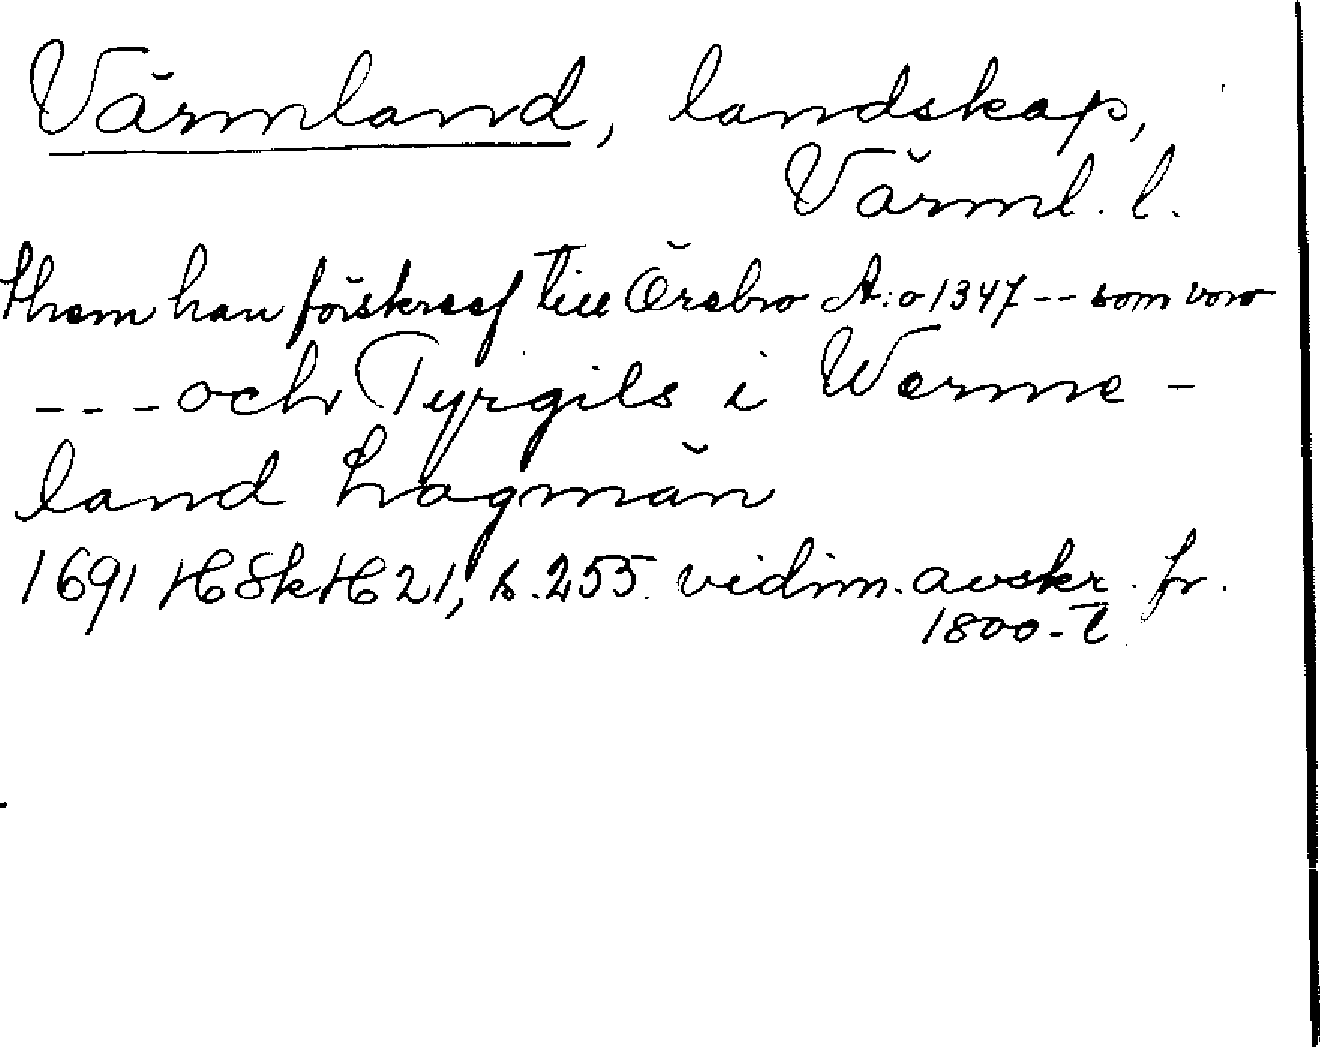 Värmland, landskap,
Värml. l.
them han förskreef till Örebro A:o 1347 -- som voro
--- och Tyrgils i Werme-
land Lagmän
1691 HSkH 21, s. 255. vidim. avskr. fr.
1800-t